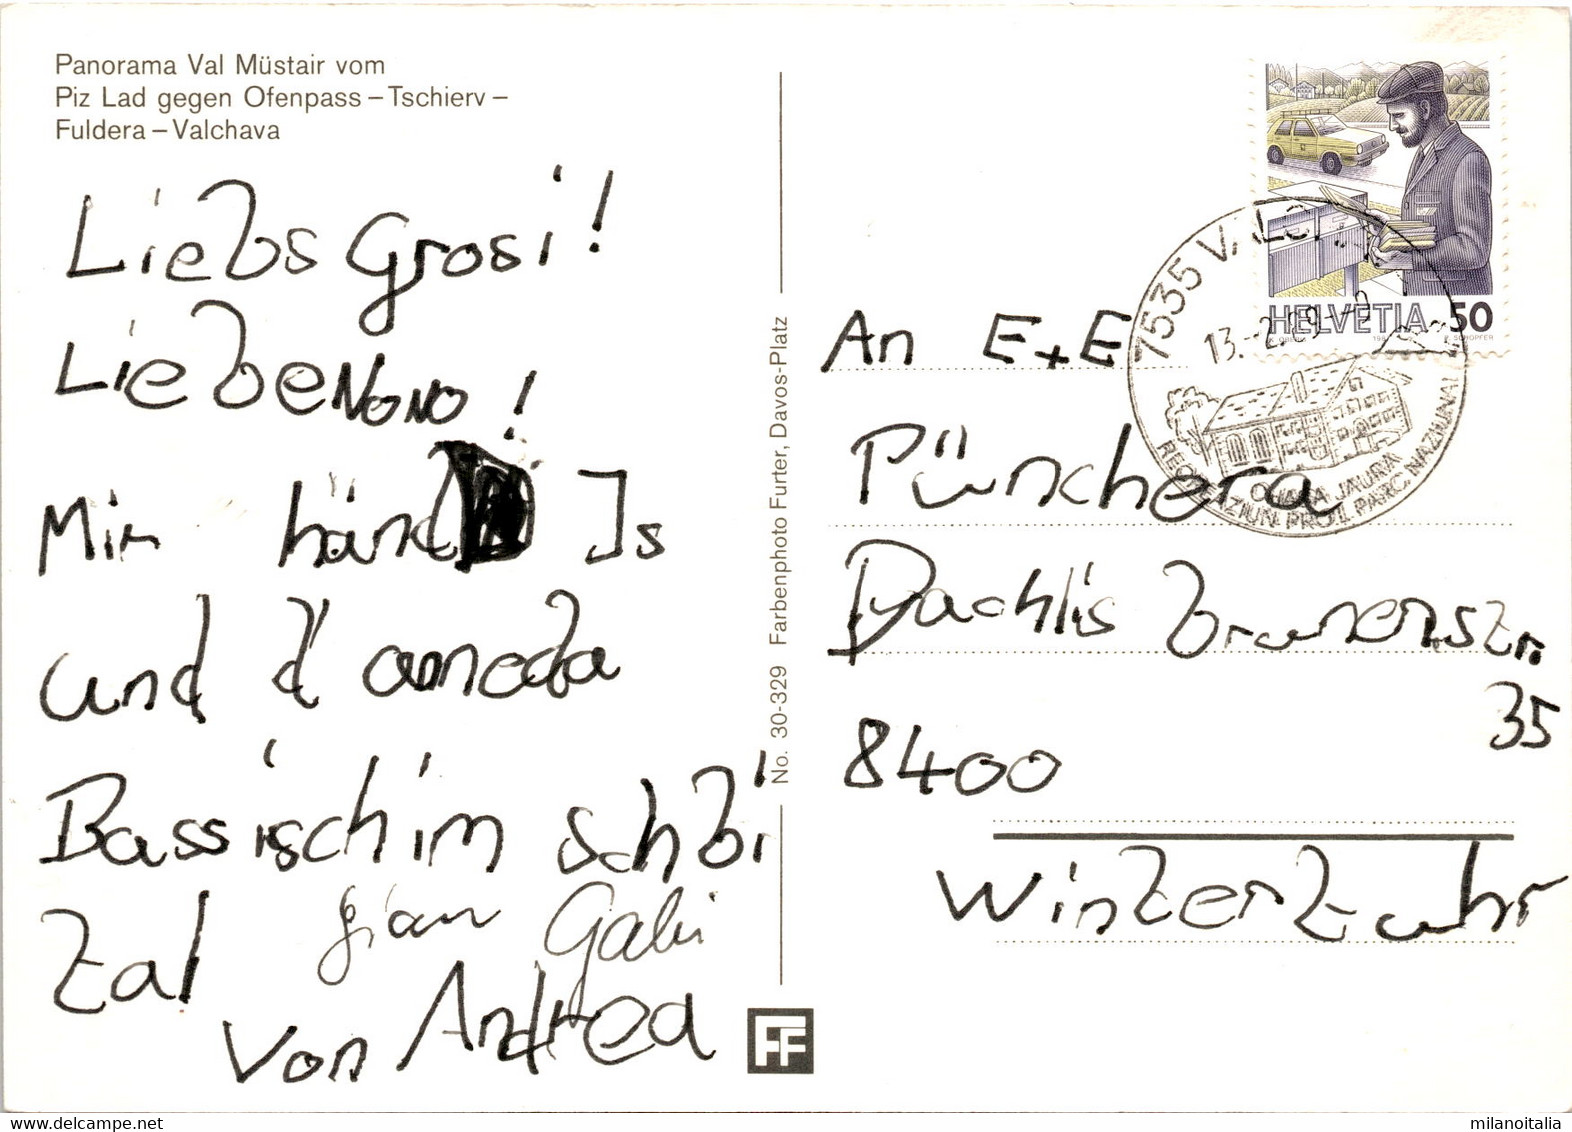 Panorama Val Müstair vom
Piz Lad gegen Ofenpass – Tschierv –
Fuldera – Valchava
Liebs Grosi!
Liebe NoNo!
Mir händ Is
und d'
Bassisch im schöi
tal
gian Gabi
Von Andrea
No. 30-329 Farbenphoto Furter, Davos-Platz
FF
HELVETIA 50
7535 VALCHAVA
13.-2.89-9
CHASA JAURA
REGIUN PARC NAZIUNAL
An E+E
Pünchera
Bachtis brunenstr.
35
8400
Winterthur
milanoitalia